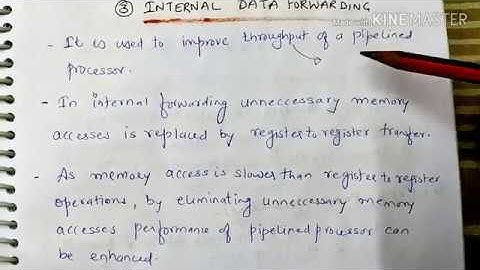 ③ INTERNAL DATA FORWARDING
Made with KINEMASTER
- It is used to improve throughput of a pipelined
processor.
- In internal forwarding unneccessary memory
accesses is replaced by register to register transfer.
- As memory access is slower than register to register
operations, by eliminating unneccessary memory
accesses performance of pipelined processor can
be enhanced.